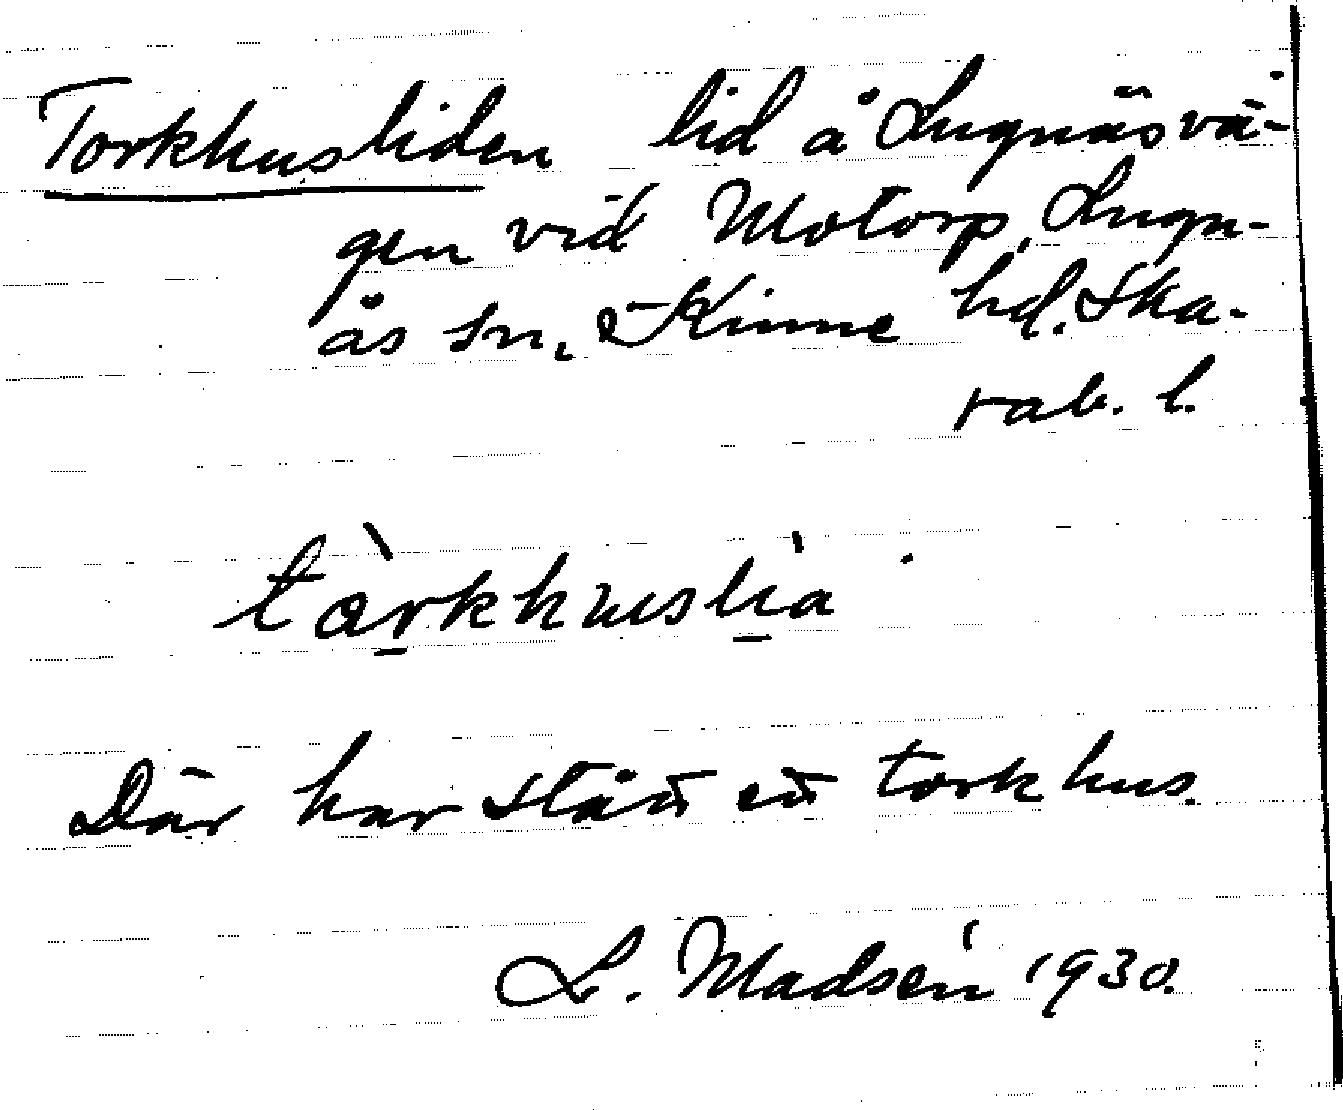 Torkhusliden lid å Lugnåsvä-
gen vid Motorp, Lugn-
ås sn, Kinne hd. Ska-
rab. l.
tàrkhuslìa
Där har stått ett torkhus.
L. Madsén 1930.